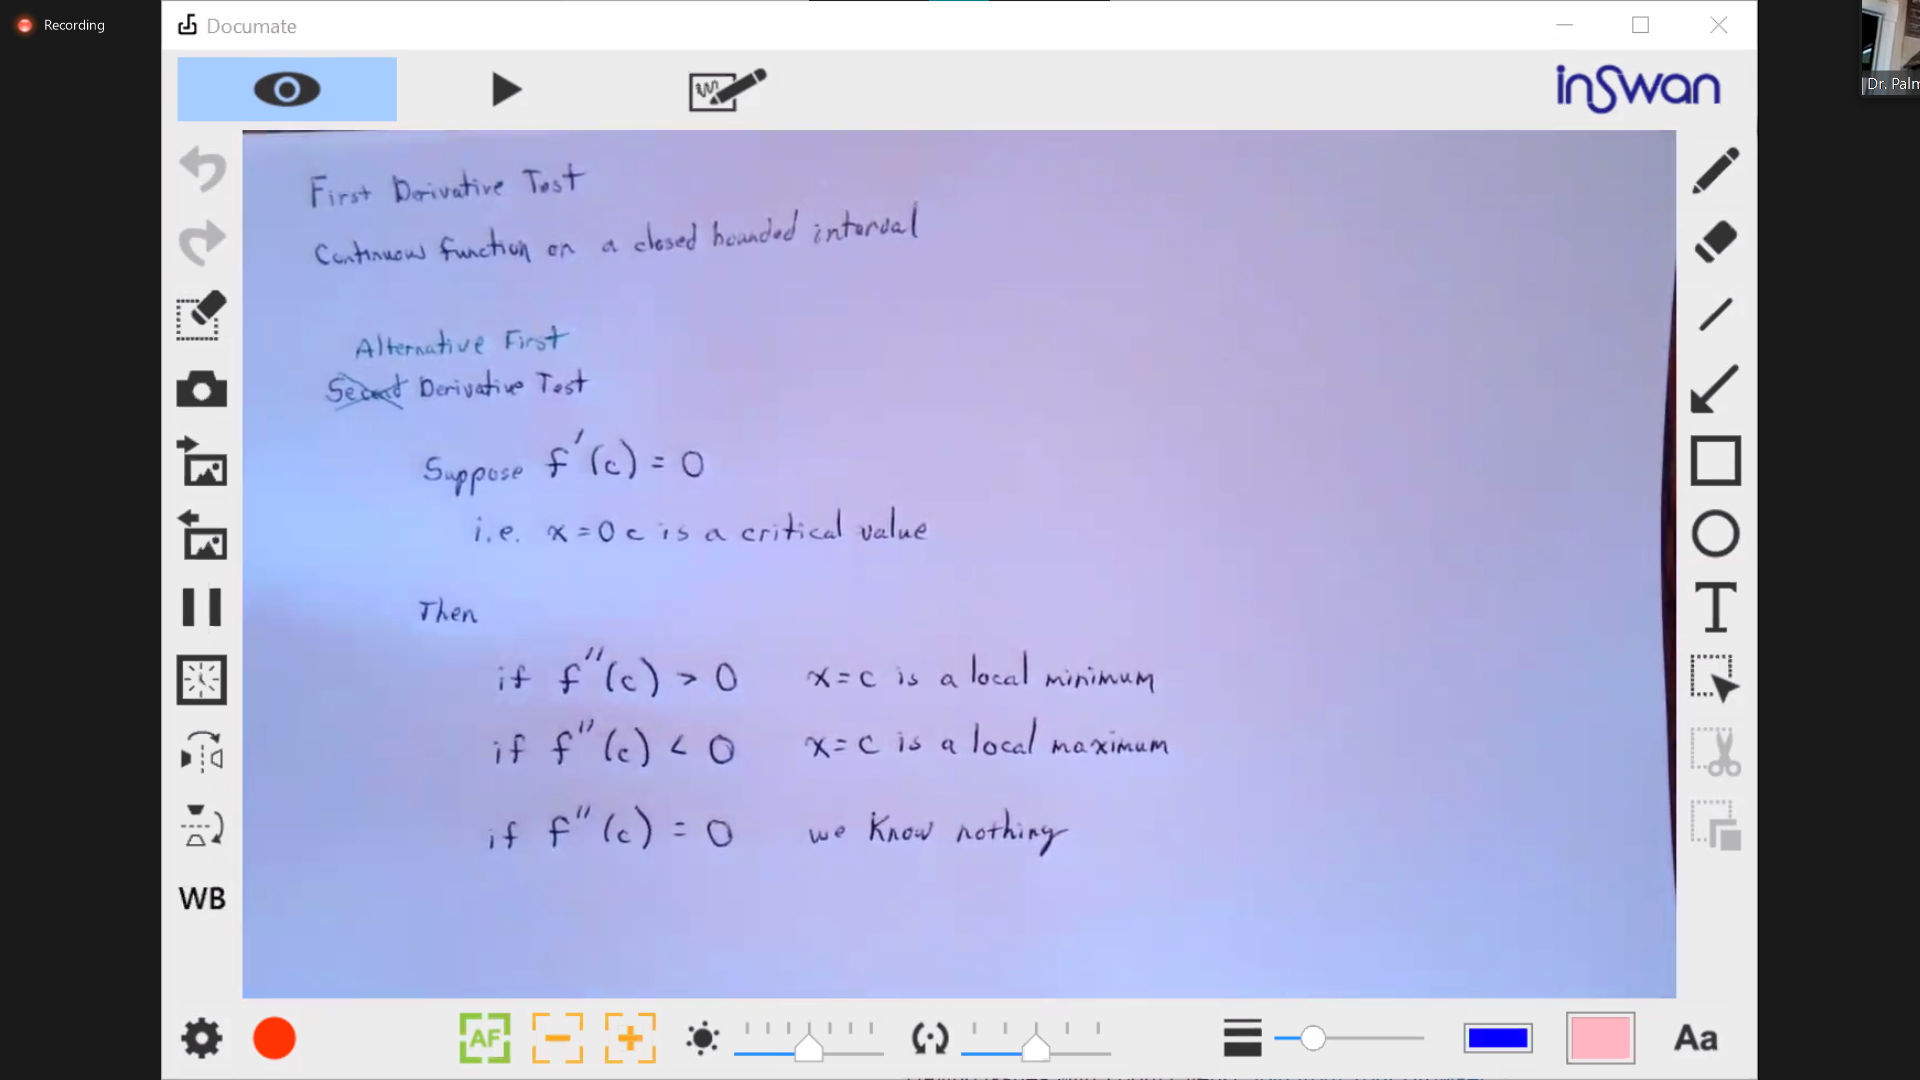 Recording
Documate
inswan
Dr. Palm
First Derivative Test
Continuous function on a closed bounded interval
Alternative First
Second Derivative Test
Suppose f'(c) = 0
i.e. x = 0 c is a critical value
Then
if f''(c) > 0 x = c is a local minimum
if f''(c) < 0 x = c is a local maximum
if f''(c) = 0 we know nothing
WB
AF
Aa